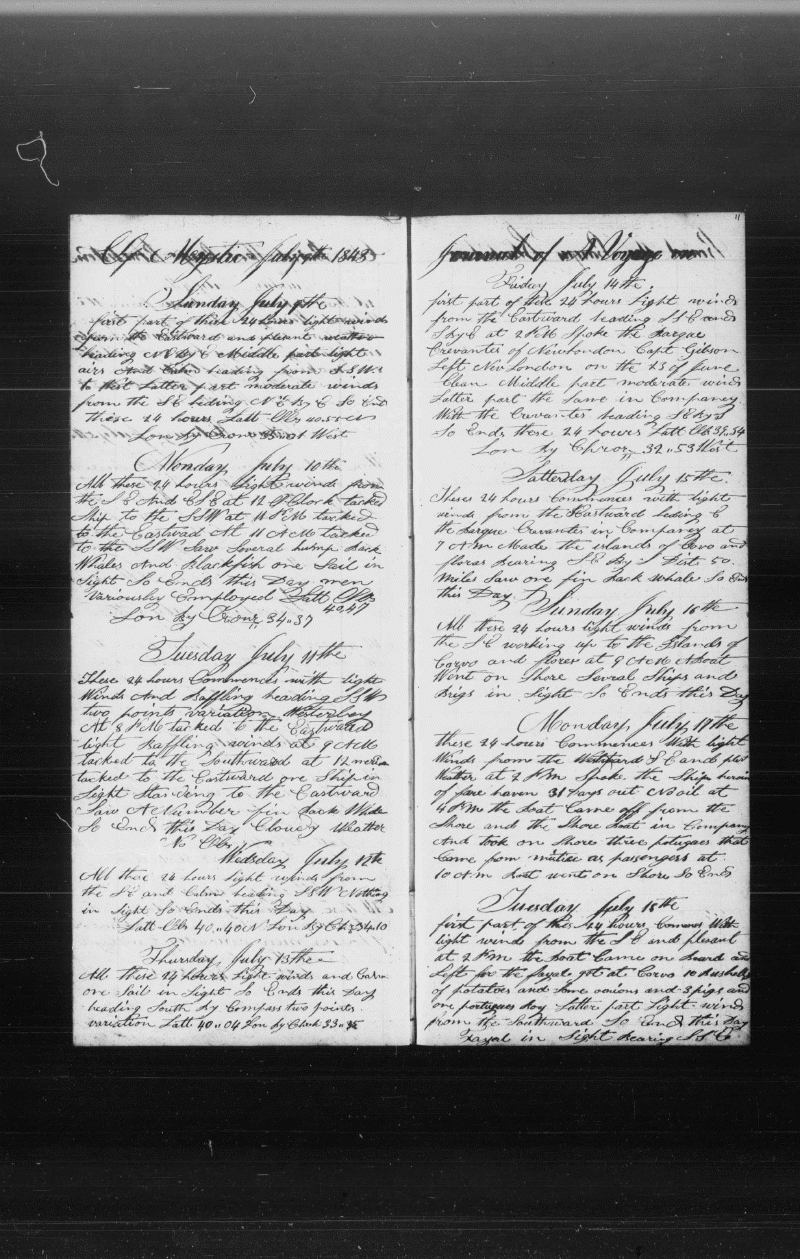 Mystic July 9th 1848
Sunday July 9th
first part of these 24 hours light winds
from the Eastward and plesant weather
heading N By E Middle part light
airs And Calm heading from SSW
to West Latter part moderate winds
from the S E heding N E By E So Ends
these 24 hours Latt Obs
Lon by Cronr West
Monday July 10th
All these 24 hours Light winds from
the S E And ESE at 12 O Clock tacked
Ship to the SSW at 11 P M tacked
to the Eastward At 11 A M tacked
to the SSW Saw Several hump Back
Whales And Blackfish one Sail in
Sight So Ends this Day men
Variousley Employed Latt Obs
40,47
Lon by Cronr 34,,37
Tuesday July 11th
These 24 hours Commences with light
Winds And Baffling heading SSW
two points variation Westerley
At 8 P M tacked to the Eastward
light Baffling winds at 9 A M
tacked to the Southward at 12 meridn
tacked to the Eastward one Ship in
Sight Standing to the Eastward
Saw A Number fin Back Whale
So Ends this Day Cloudy Weather
No Obs
Wedsday July 12th
All these 24 hours Light winds from
the S E and Calm heading SSW Nothing
in Sight So Ends this Day
Latt Obs 40,,40 N Lon By Ch 34,,10
Thursday July 13th
All these 24 hours Light winds and Calm
one Sail in Sight So Ends this Day
heading South by Compass two points
variation Latt 40,,04 Lon by Chr 33,,
11
Journal of A Voyage
Friday July 14th
first part of these 24 hours Light winds
from the Eastward heading S E and
S By E at 2 P M Spoke the Barque
Crevantes of Newlondon Capt Gibson
Left New London on the 23 of June
Clean Middle part moderate winds
Latter part the Same in Companey
With the Crevantes heading S E By S
So Ends these 24 hours Latt Obs 39,,54
Lon By Chron 32,,53 West
Satterday July 15th
Theses 24 hours Commences with light
winds from the Eastward heding
the Barque Crevantes in Company at
7 A m Made the islands of Corvo and
floras Bearing S E By S Dist 50
miles Saw one fin Back whale So Ends
this Day
Sunday July 16th
All these 24 hours light winds from
the S E working up to the Islands of
Corvo and flores at 9 A M A Boat
Went on Shore Several Ships and
Brigs in Sight So Ends this Day
Monday July 17th
these 24 hours Commences With light
Winds from the S E and plst
Weather at 2 P m Spoke the Ship
of fare haven 31 Days out No oil at
4 P m the Boat Came off from the
Shore and the Shore Boat in Company
And took on Shore three potugaes that
Came from as passengers at
10 A m Boat went on Shore So Ends
Tuesday July 18th
first part of this 24 hours Comences With
light winds from the S E and plesant
at 2 P m the Boat Came on Board and
Left for the fayale got at Corvo 10 Bushells
of potatoes and Some onions and 3 pigs and
one portugues boy Latter part Light winds
from the Southward So Ends this Day
Fayal in Sight Bearing S S E